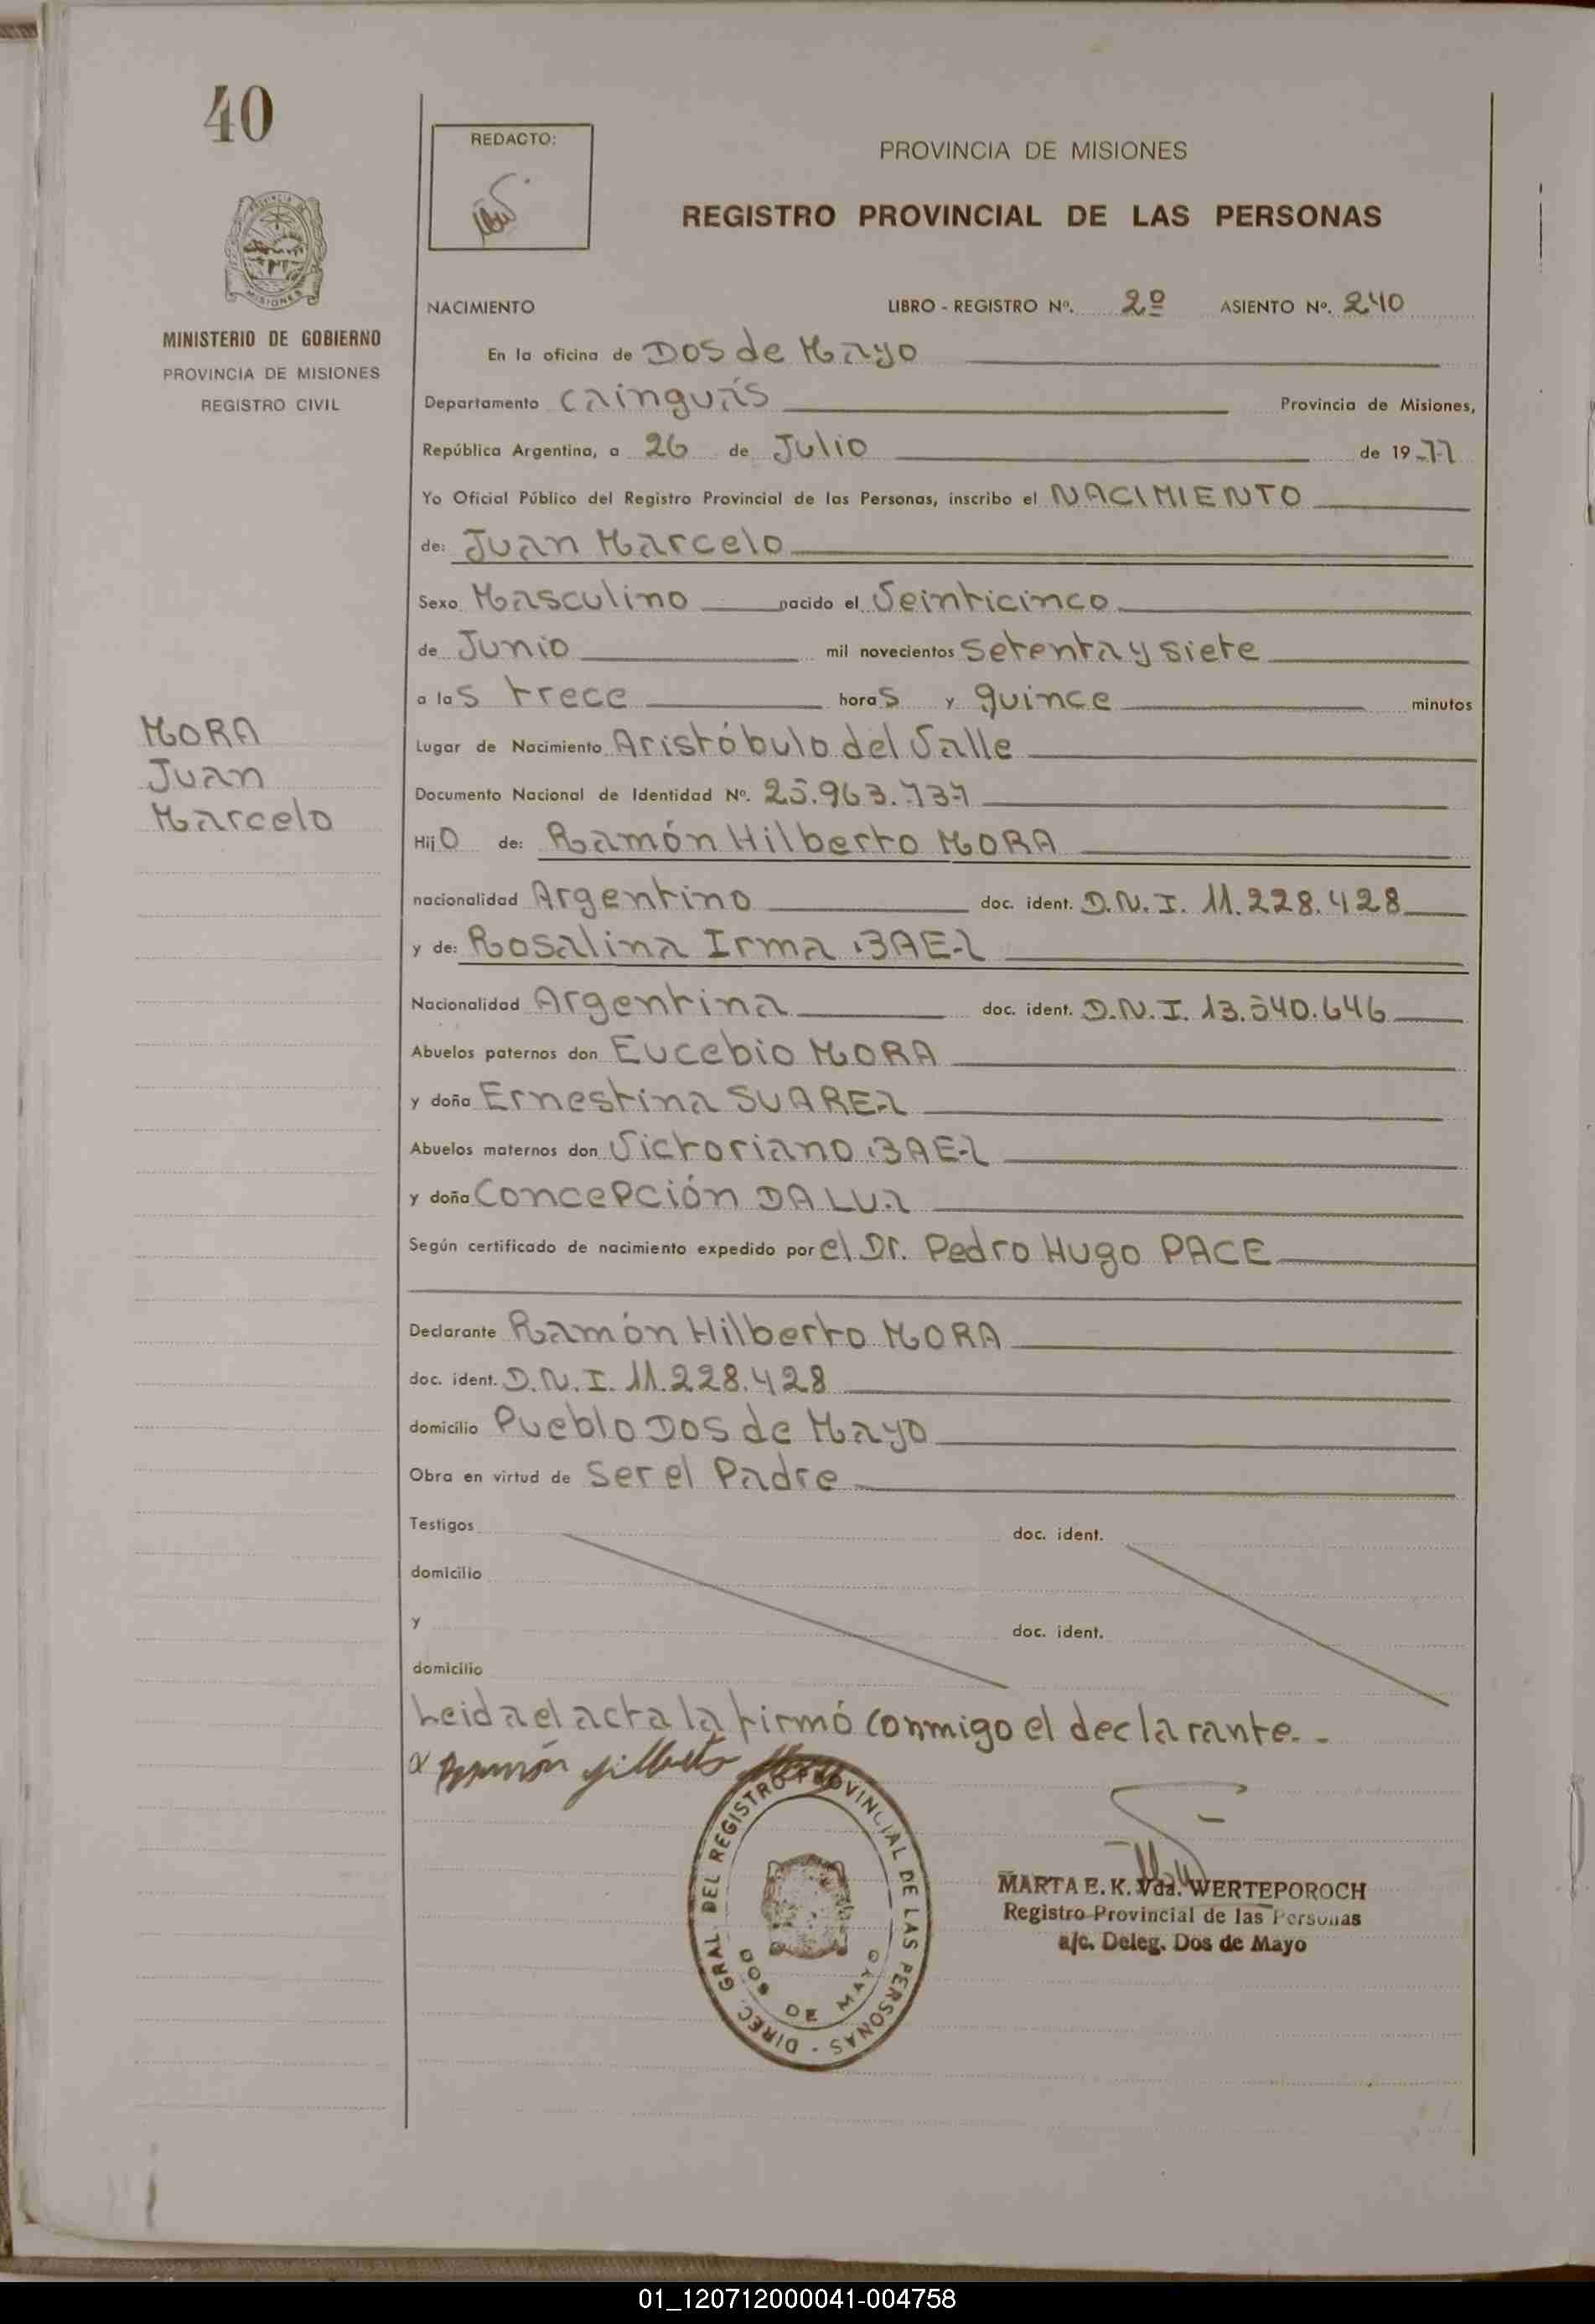 40
REDACTO:
PROVINCIA DE MISIONES
REGISTRO PROVINCIAL DE LAS PERSONAS
MISIONES
MINISTERIO DE GOBIERNO
PROVINCIA DE MISIONES
REGISTRO CIVIL
NACIMIENTO LIBRO - REGISTRO Nº. 2º ASIENTO Nº. 240
En la oficina de Dos de Mayo
Departamento Cainguás Provincia de Misiones,
República Argentina, a 26 de Julio de 1977
Yo Oficial Público del Registro Provincial de las Personas, inscribo el NACIMIENTO
de: Juan Marcelo
Sexo Masculino nacido el Veinticinco
de Junio mil novecientos Setenta y siete
a las trece horas y quince minutos
MORA
Juan
Marcelo
Lugar de Nacimiento Aristóbulo del Valle
Documento Nacional de Identidad Nº. 25.963.737
Hijo de: Ramón Hilberto MORA
nacionalidad Argentino doc. ident. D.N.I. 11.228.428
y de: Rosalina Irma BAEZ
Nacionalidad Argentina doc. ident. D.N.I. 13.540.646
Abuelos paternos don Eucebio MORA
y doña Ernestina SUAREZ
Abuelos maternos don Victoriano BAEZ
y doña Concepción DA LUZ
Según certificado de nacimiento expedido por el Dr. Pedro Hugo PACE
Declarante Ramón Hilberto MORA
doc. ident. D.N.I. 11.228.428
domicilio Pueblo Dos de Mayo
Obra en virtud de Ser el Padre
Testigos doc. ident.
domicilio
y doc. ident.
domicilio
Leida el acta la firmó conmigo el declarante.-
Ramón Hilberto
DIREC. GRAL. DEL REGISTRO PROVINCIAL DE LAS PERSONAS -
DOS DE MAYO
MARTA E. K. Vda. WERTEPOROCH
Registro Provincial de las Personas
a/c. Deleg. Dos de Mayo
01_120712000041-004758